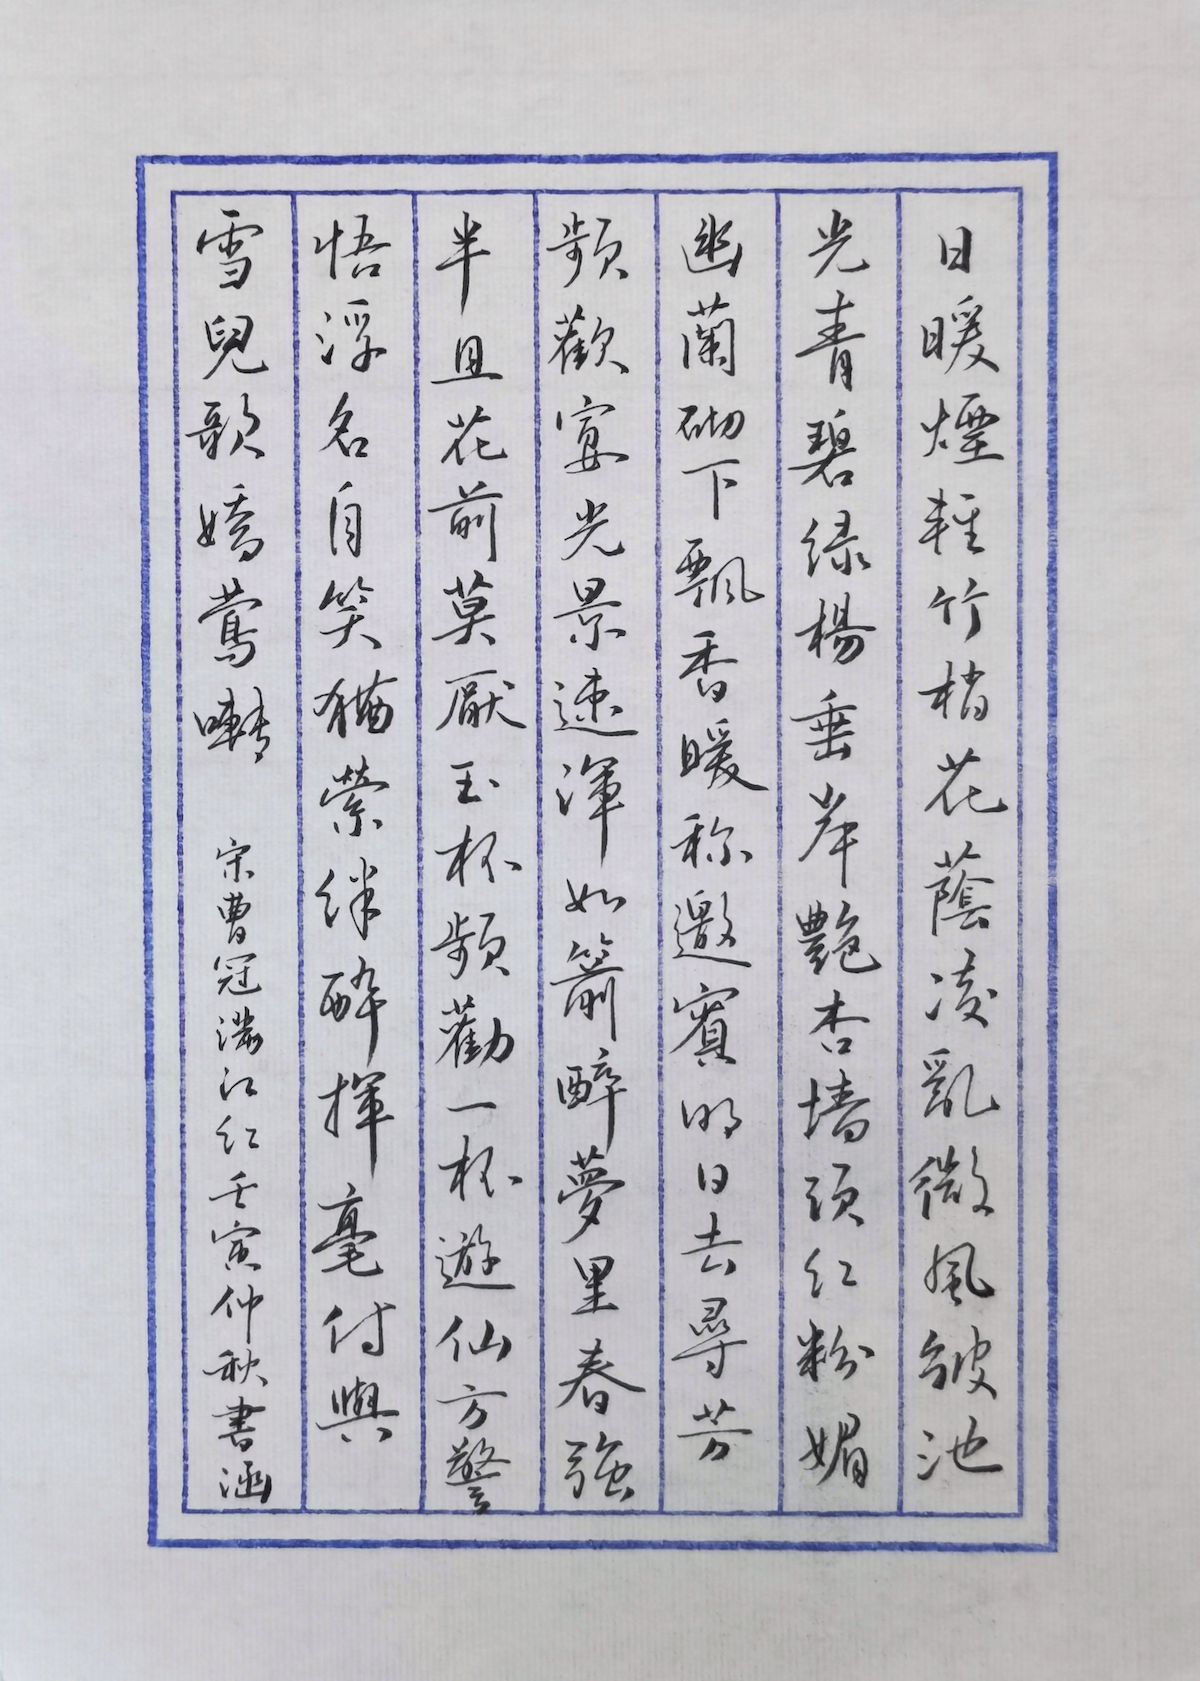 日暖煙輕竹梢花蔭凌亂微風皱池
光青碧绿楊垂岸艶杏墙頭红粉媚
幽蘭砌下飄香暖称邀賓明日去尋芳
頻歡宴光景速渾如箭醉夢里春强
半且花前莫厭玉杯頻勸一杯遊仙方警
悟浮名自笑猶縈絆酔揮毫付與
雪兒歌嬌鶯囀
宋曹冠满江红壬寅仲秋書涵